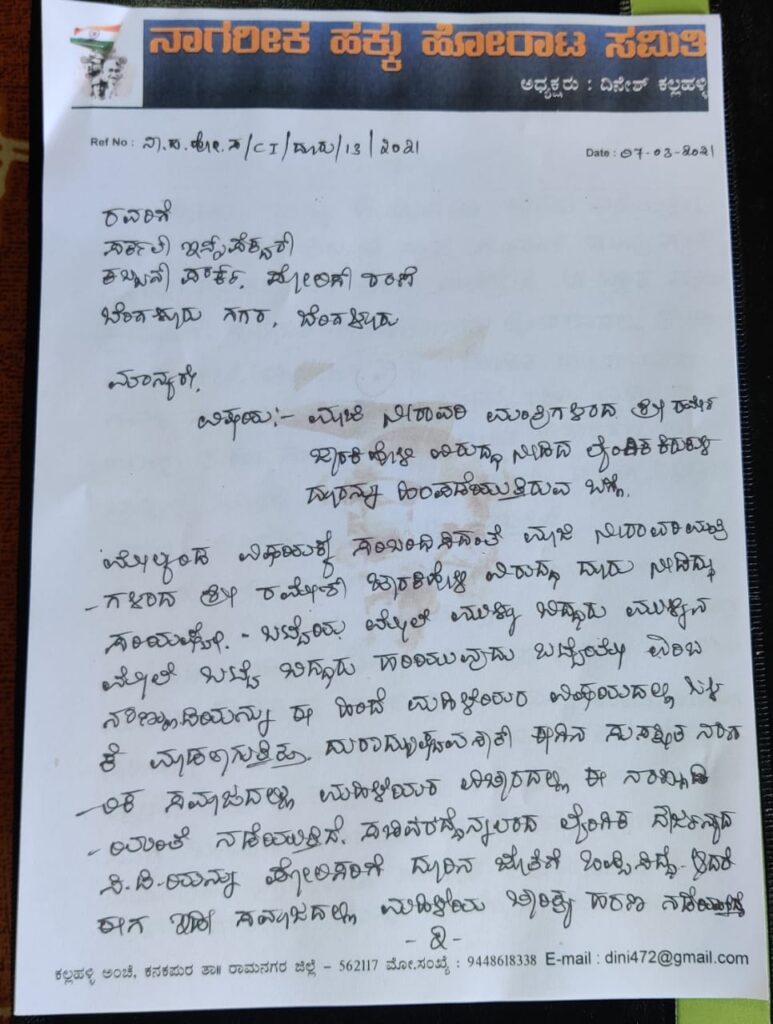 ನಾಗರೀಕ ಹಕ್ಕು ಹೋರಾಟ ಸಮಿತಿ
ಅಧ್ಯಕ್ಷರು : ದಿನೇಶ್ ಕಲ್ಲಹಳ್ಳಿ
Ref No : ನಾ.ಹ.ಹೋ.ಸ/CI/ದೂರು/13/2021
Date : 07-03-2021
ರವರಿಗೆ
ಸರ್ಕಲ್ ಇನ್ಸ್‌ಪೆಕ್ಟರ್
ಕಬ್ಬನ್ ಪಾರ್ಕ್, ಪೋಲಿಸ್ ಠಾಣೆ
ಬೆಂಗಳೂರು ನಗರ, ಬೆಂಗಳೂರು
ಮಾನ್ಯರೇ,
ವಿಷಯ:- ಮಾಜಿ ನೀರಾವರಿ ಮಂತ್ರಿಗಳಾದ ಶ್ರೀ ರಮೇಶ
ಜಾರಕಿಹೊಳಿ ವಿರುದ್ಧ ನೀಡಿದ ಲೈಂಗಿಕ ಕಿರುಕುಳ
ದೂರನ್ನು ಹಿಂಪಡೆಯುತ್ತಿರುವ ಬಗ್ಗೆ.
ಮೇಲ್ಕಂಡ ವಿಷಯಕ್ಕೆ ಸಂಬಂದಿಸಿದಂತೆ ಮಾಜಿ ನೀರಾವರಿ ಮಂತ್ರಿ
-ಗಳಾದ ಶ್ರೀ ರಮೇಶ್ ಜಾರಕಿಹೊಳಿ ವಿರುದ್ಧ ದೂರು ನೀಡಿದ್ದು
ಸರಿಯಷ್ಟೇ. - ಬಟ್ಟೆಯ ಮೇಲೆ ಮುಳ್ಳು ಬಿದ್ದರು ಮುಳ್ಳಿನ
ಮೇಲೆ ಬಟ್ಟೆ ಬಿದ್ದರು ಹರಿಯುವುದು ಬಟ್ಟೆಯೇ ಎಂಬ
ನಾಣ್ಣುಡಿಯನ್ನು ಈ ಹಿಂದೆ ಮಹಿಳೆಯರ ವಿಷಯದಲ್ಲಿ ಬಳ
ಕೆ ಮಾಡಲಾಗುತ್ತಿತ್ತು. ದುರಾದೃಷ್ಟವಶಾತ್ ಈಗಿನ ಸುಸಜ್ಜಿತ ನಾಗ
-ರಿಕ ಸಮಾಜದಲ್ಲು ಮಹಿಳೆಯರ ವಿಚಾರದಲ್ಲಿ ಈ ನಾಣ್ಣುಡಿ
-ಯಂತೆ ನಡೆಯುತ್ತಿದೆ. ಲೈಂಗಿಕ ದೌರ್ಜನ್ಯದ
ಸಿ.ಡಿ.ಯನ್ನು ಪೋಲಿಸರಿಗೆ ದೂರಿನ ಜೊತೆಗೆ ಒಪ್ಪಿಸಿದ್ದೆ. ಆದರೆ
ಈಗ ಇಡೀ ಸಮಾಜದಲ್ಲಿ ಮಹಿಳೆಯ ಚಾರಿತ್ರ್ಯ ಹರಣ ನಡೆಯುತ್ತಿದೆ
- 2 -
ಕಲ್ಲಹಳ್ಳಿ ಅಂಚೆ, ಕನಕಪುರ ತಾ॥ ರಾಮನಗರ ಜಿಲ್ಲೆ – 562117 ಮೋ.ಸಂಖ್ಯೆ : 9448618338 E-mail : dini472@gmail.com